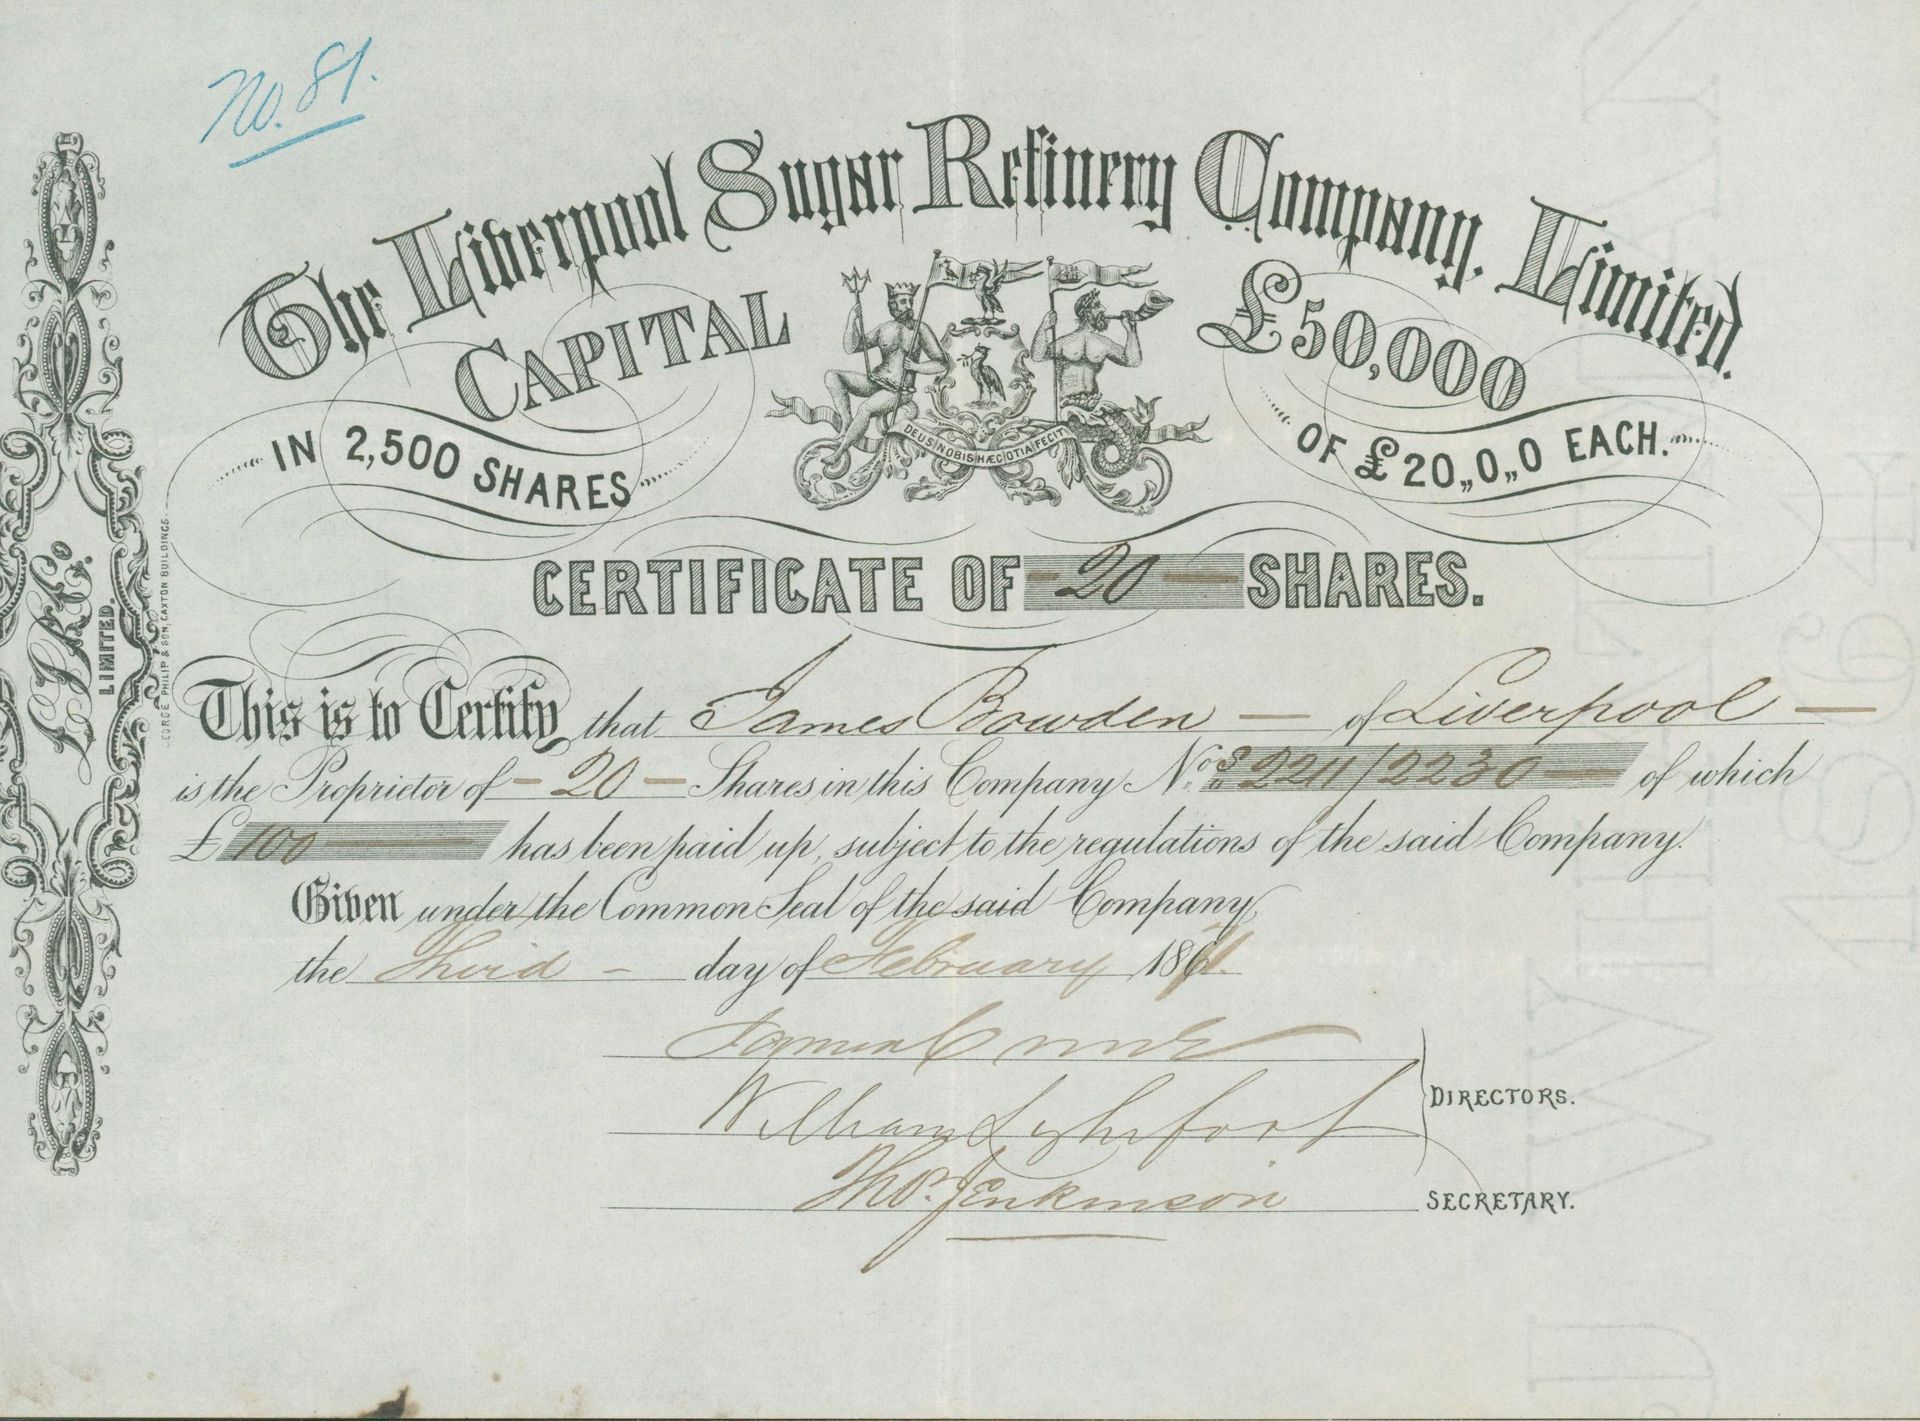 No. 81.
The Liverpool Sugar Refinery Company, Limited.
CAPITAL £50,000
IN 2,500 SHARES OF £20,,0,,0 EACH.
DEUS NOBIS HÆC OTIA FECIT
CERTIFICATE OF 20 SHARES.
This is to Certify that James Bowden of Liverpool
is the Proprietor of 20 Shares in this Company Nos. 2211/2230 of which
£ 100 has been paid up, subject to the regulations of the said Company.
Given under the Common Seal of the said Company,
the Third day of February 18
William Lightfoot
DIRECTORS.
Thos. Jenkinson SECRETARY.
LIMITED.
GEORGE PHILIP & SON, CAXTON BUILDINGS
1864